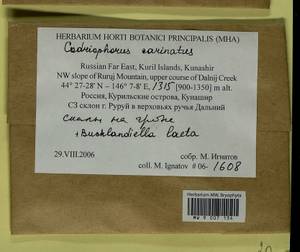 HERBARIUM HORTI BOTANICI PRINCIPALIS (MHA)
Codriophorus carinatus
Russian Far East, Kuril Islands, Kunashir
NW slope of Ruruj Mountain, upper course of Dalnij Creek
44° 27-28' N – 146° 7-8' E, 1315 [900-1350] m alt.
Россия, Курильские острова, Кунашир
СЗ склон г. Руруй в верховьях ручья Дальний
скалы на гребне
+ Bucklandiella laeta
29.VIII.2006
собр. М. Игнатов
coll. M. Ignatov # 06- 1608
Herbarium MW, Bryophyta
MW 9 007 134